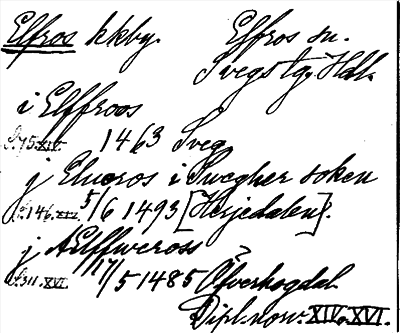 Elfros kkby. Elfros sn.
Svegs tg. Hdl.
i Elffroos
S. 75. XIV. 1463 Sveg
j Eluoros i Swegher soken
S. 146. XIV. 5/6 1493 [Herjedalen].
j Aelffweross
S. 311. XVI. 17/5 1485 Öfverhogdal.
Dipl. norv. XIV o. XVI.